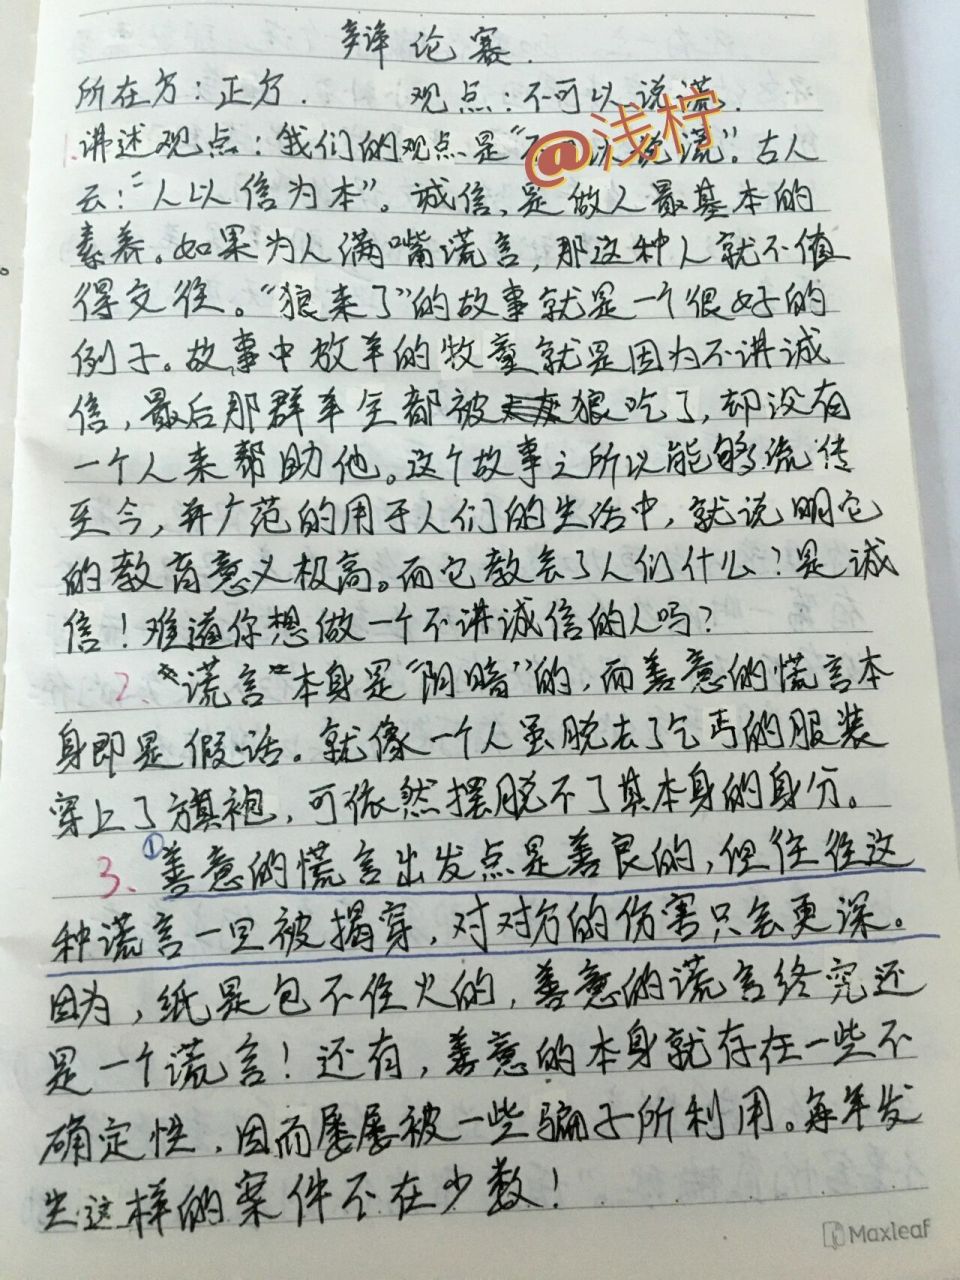 辩论赛.
所在方：正方. 观点：不可以说谎.
@浅柠
1.讲述观点：我们的观点是“不可以说谎”。古人
云：“人以信为本”。诚信，是做人最基本的
素养。如果为人满嘴谎言，那这种人就不值
得交往。“狼来了”的故事就是一个很好的
例子。故事中放羊的牧童就是因为不讲诚
信，最后那群羊全都被狼吃了，却没有
一个人来帮助他。这个故事之所以能够流传
至今，并广范的用于人们的生活中，就说明它
的教育意义极高。而它教会了人们什么？是诚
信！难道你想做一个不讲诚信的人吗？
2、“谎言”本身是“阴暗”的，而善意的慌言本
身即是假话。就像一个人虽脱去了乞丐的服装
穿上了旗袍，可依然摆脱不了其本身的身分。
3、①善意的慌言出发点是善良的，但往往这
种谎言一旦被揭穿，对对方的伤害只会更深。
因为，纸是包不住火的，善意的谎言终究还
是一个谎言！还有，善意的本身就存在一些不
确定性，因而屡屡被一些骗子所利用。每年发
生这样的案件不在少数！
Maxleaf